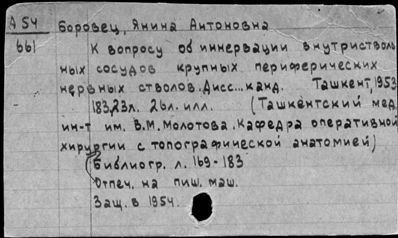 А54 Боровец, Янина Антоновна
661 К вопросу об иннервации внутристволь
ных сосудов крупных периферических
нервных стволов. Дисс...канд. Ташкент, 1953
183,23л. 26л. илл. (Ташкентский мед.
ин-т им. В.М. Молотова. Кафедра оперативной
хирургии с топографической анатомией)
Библиогр. л. 169-183
Отпеч. на пиш. маш.
Защ. в 1954.